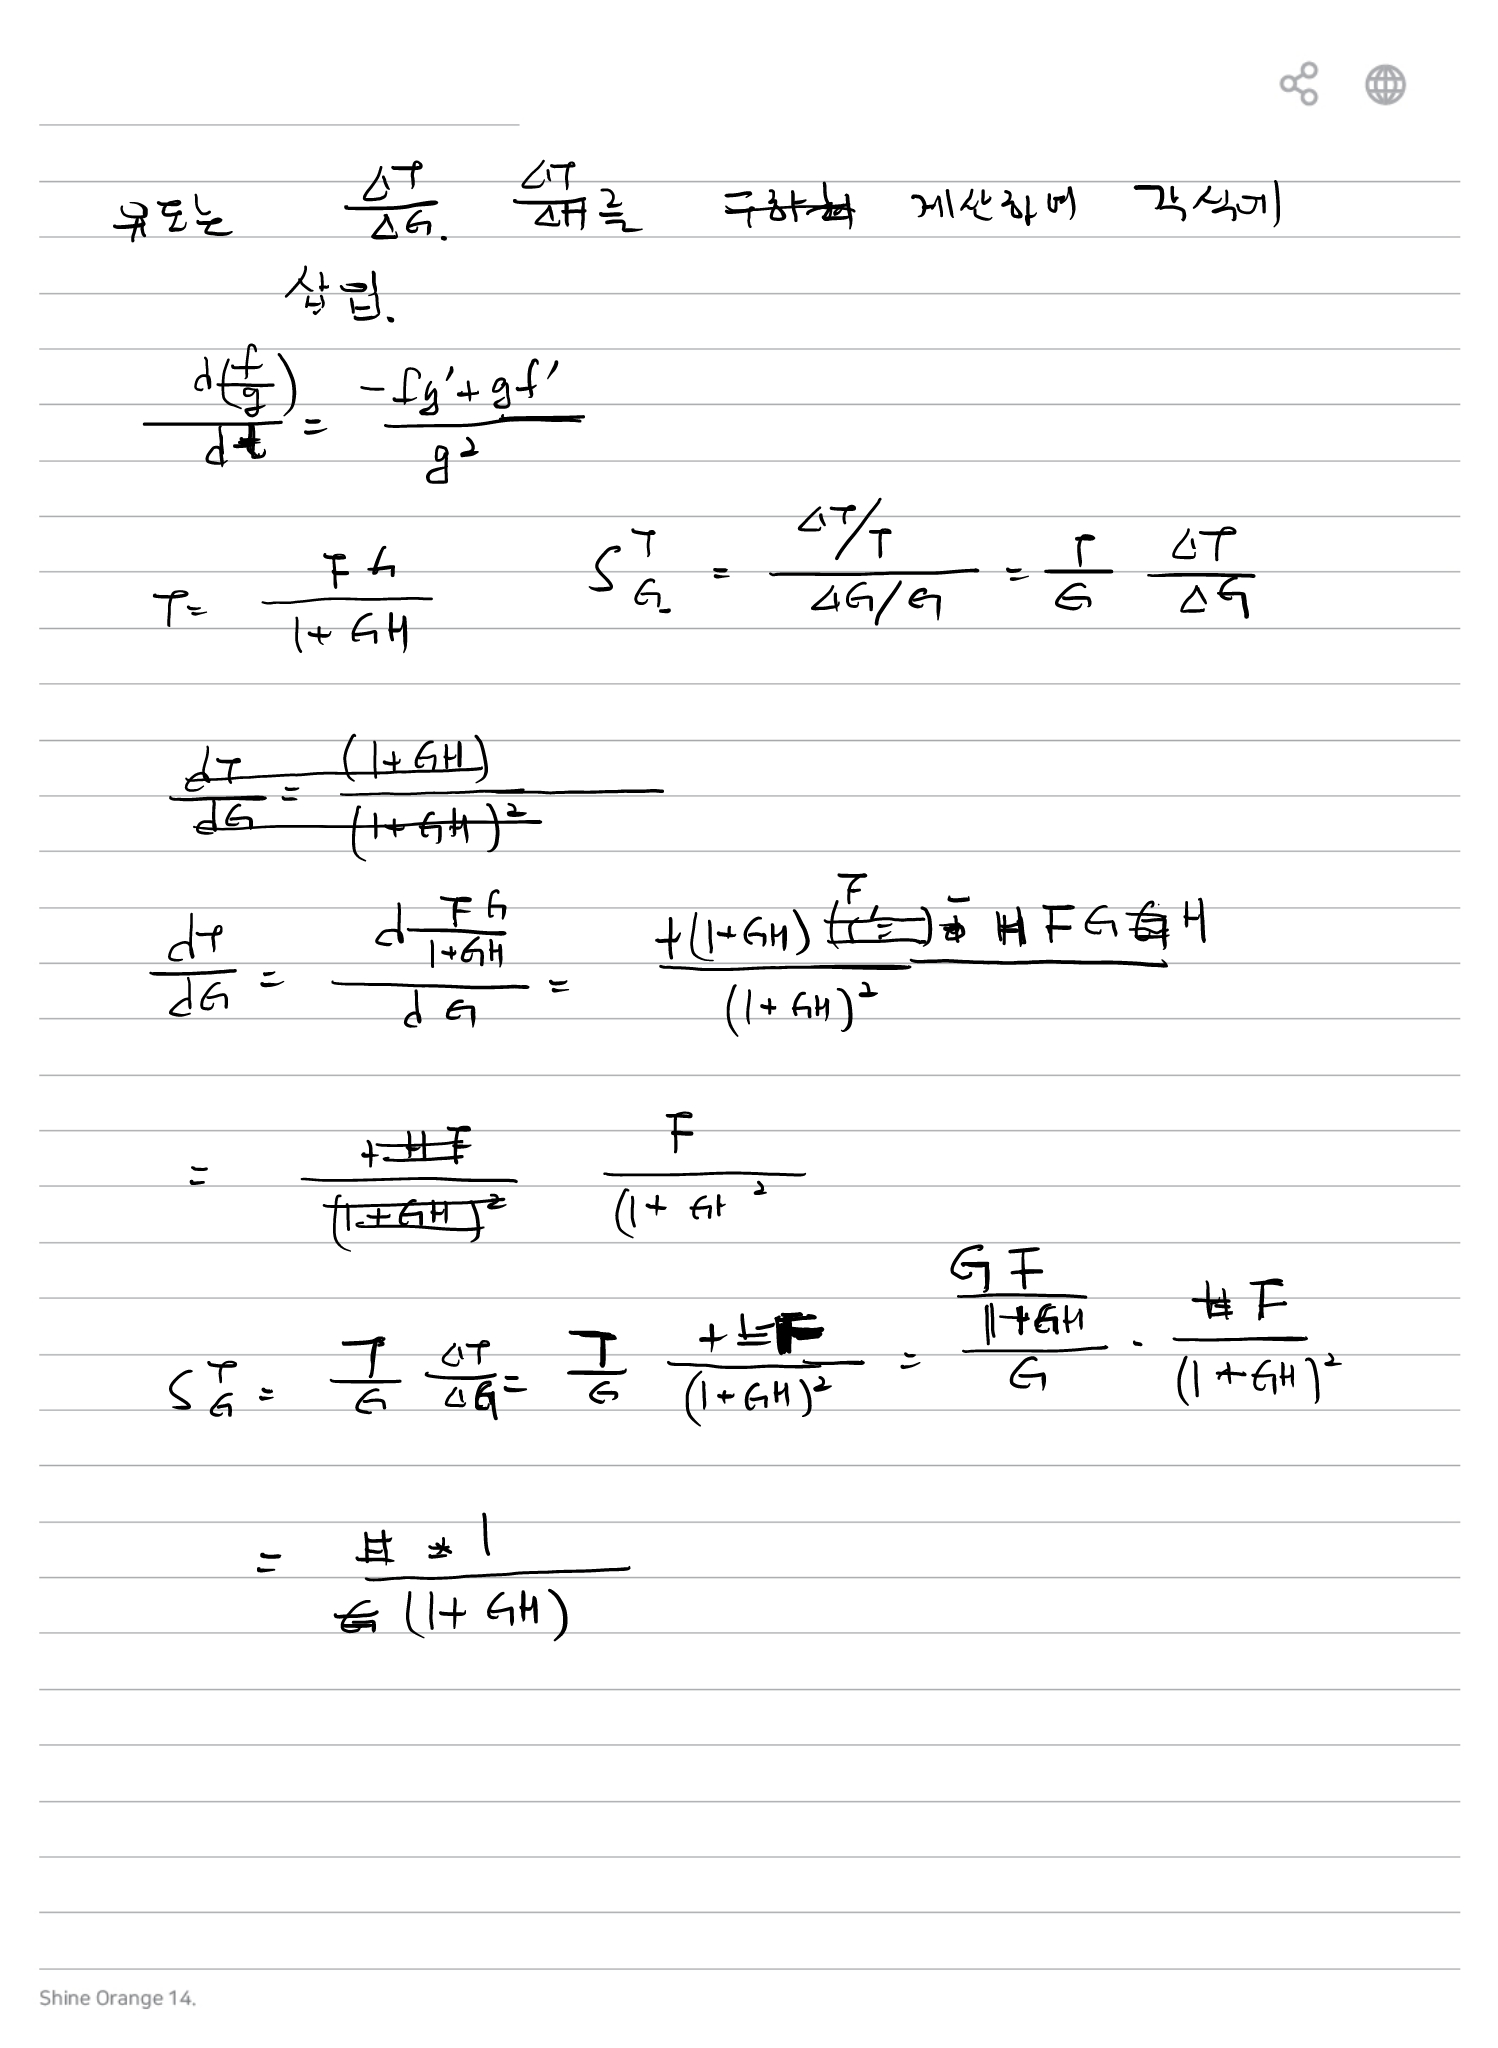 유도는 ΔT/ΔG. ΔT/ΔH를 구하여 계산하며 각 식에
삽입.
d(f/g)/dt = (-fg'+gf')/g²
T= FG/(1+GH) S^T_G = (ΔT/T)/(ΔG/G) = T/G ΔT/ΔG
dT/dG = (1+GH)/(1+GH)²
dT/dG = d FG/(1+GH) / dG = (+(1+GH) F - FGH)/(1+GH)²
= +HF/(1+GH)² F/(1+GH ²
S^T_G = T/G ΔT/ΔG = T/G + F/(1+GH)² = (GF/(1+GH))/G · F/(1+GH)²
= 1/(1+GH)
Shine Orange 14.